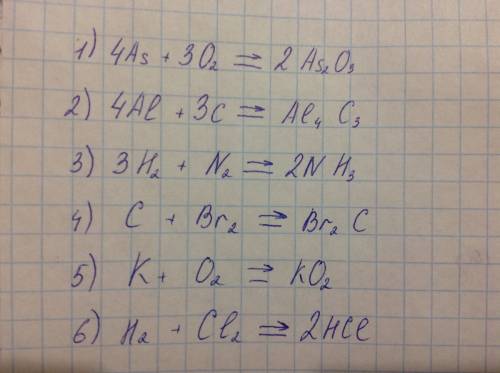 1) 4As + 3O₂ ⇌ 2 As₂O₃
2) 4Al + 3C ⇌ Al₄ C₃
3) 3H₂ + N₂ ⇌ 2N H₃
4) C + Br₂ ⇌ Br₂ C
5) K + O₂ ⇌ KO₂
6) H₂ + Cl₂ ⇌ 2HCl